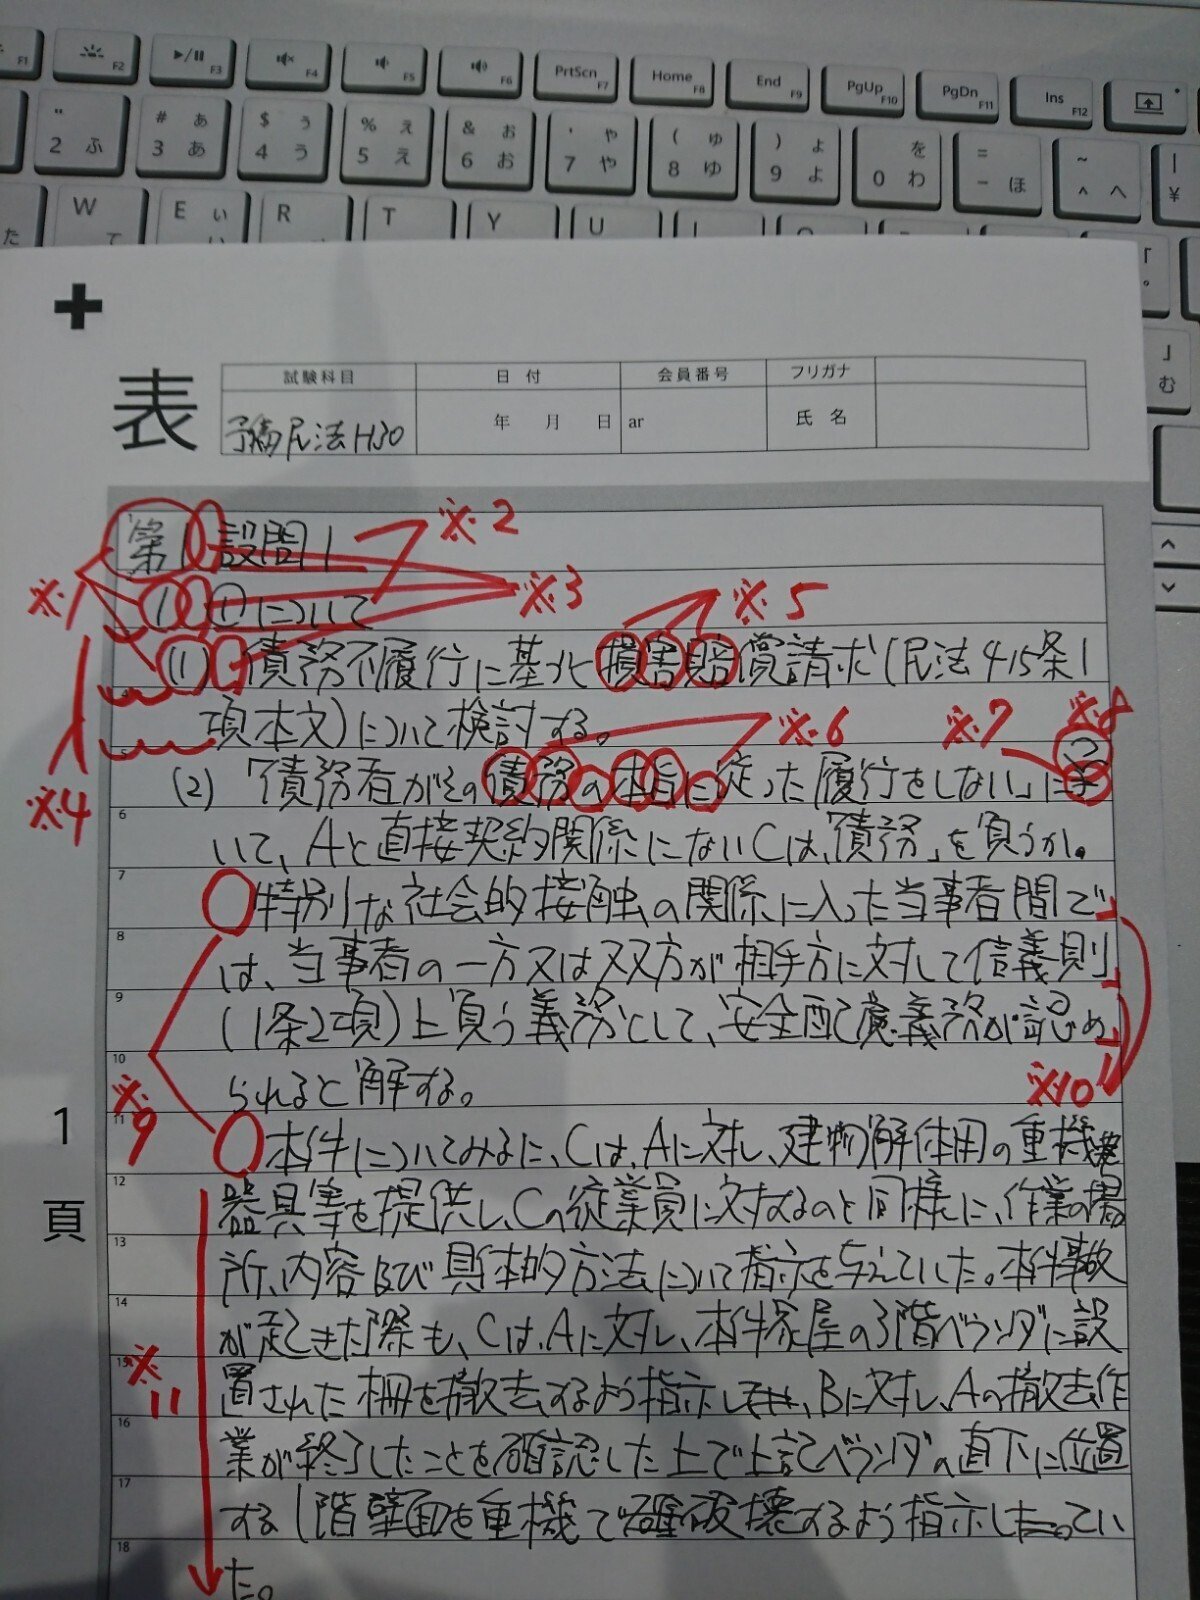 F1 F2 F3 F4 F5 F6 PrtScn F7 Home F8 End F9 PgUp F10 PgDn F11 Ins F12
" 2 ふ # ぁ 3 あ $ ぅ 4 う % ぇ 5 え & ぉ 6 お ' ゃ 7 や ( ゅ 8 ゆ ) ょ 9 よ を 0 わ = - ほ ~ ^ へ | ¥
た W て E ぃ い R T Y U
「 。
」 む
表
試験科目 日付 会員番号 フリガナ
予備民法H30 年 月 日 ar 氏名
第1 設問1
※2
※1
1 ①について
※3
※5
(1) 債務不履行に基づく損害賠償請求(民法415条1
項本文)について検討する。
※6
※7
※8
※4
(2) 「債務者がその債務の本旨に従った履行をしない」につ
いて、Aと直接契約関係にないCは、「債務」を負うか。
特別な社会的接触の関係に入った当事者間で
は、当事者の一方又は双方が相手方に対して信義則
(1条2項)上負う義務として、安全配慮義務が認め
られると解する。
※9
※10
本件についてみるに、Cは、Aに対し、建物解体用の重機
器具等を提供し、Cの従業員に対するのと同様に、作業の場
所、内容及び具体的方法について指示を与えていた。本件事故
が起きた際も、Cは、Aに対し、本件家屋の3階ベランダに設
置された柵を撤去するよう指示し、Bに対し、Aの撤去作
業が終了したことを確認した上で上記ベランダの直下に位置
する1階壁面を重機で破壊するよう指示してい
た。
※11
1
頁
4
5
6
7
8
9
10
11
12
13
14
15
16
17
18